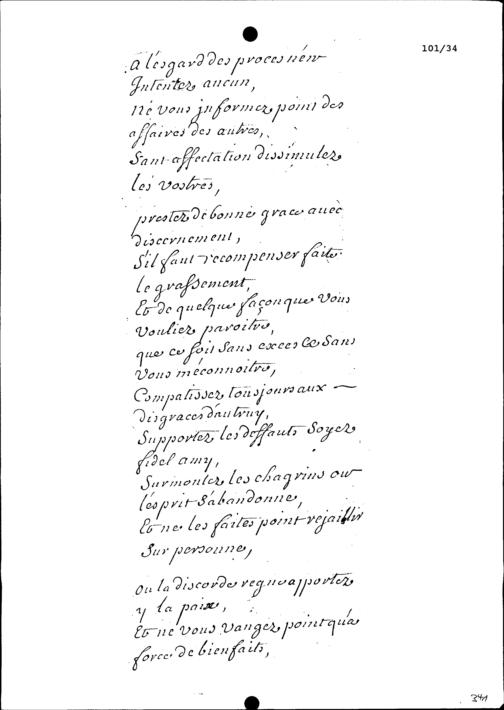 101/34
a l'esgard des proces n'en
Intentez aucun,
Ne vous jnformez point des
affaires des autres,
Sans affectation dissimulez
les vostres,
prestez de bonne grace avec
discernement,
S'il faut recompenser faite
le grassement,
Et de quelque façon que vous
vouliez paroitre,
que ce soit sans exces Et Sans
vous méconnoitre,
Compatissez tousjours aux
disgraces d'autruy,
Supportez les deffauts Soyez
fidel amy,
Surmontez les chagrins ou
l'esprit s'abandonne,
Et ne les faites point rejaillir
Sur personne,
ou la discorde regne apportez
y la paix,
Et ne vous vangez point qu'a
force de bienfaits,
341